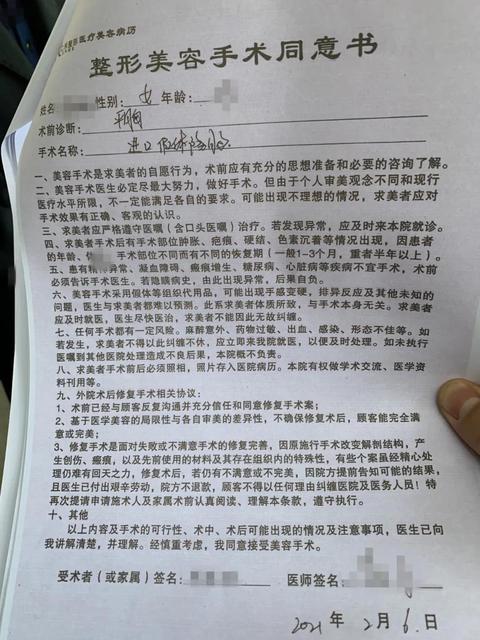 医疗美容病历
整形美容手术同意书
姓名 性别: 女 年龄:
术前诊断:
手术名称: 进口假体隆胸
一、美容手术是求美者的自愿行为,术前应有充分的思想准备和必要的咨询了解。
二、美容手术医生必定尽最大努力,做好手术。但由于个人审美观念不同和现行
医疗水平所限,不一定能满足各自的要求。可能出现不理想的情况,求美者应对
手术效果有正确、客观的认识。
三、求美者应严格遵守医嘱(含口头医嘱)治疗。若发现异常,应及时来本院就诊。
四、求美者手术后有手术部位肿胀、疤痕、硬结、色素沉着等情况出现,因患者
的年龄、 手术部位不同而有不同的恢复期(一般1-3个月,重者半年以上)。
五、患有精神异常、凝血障碍、瘢痕增生、糖尿病、心脏病等疾病不宜手术,术前
必须告诉手术医生。若隐瞒病史,由此出现异常,后果自负。
六、美容手术采用假体等组织代用品,可能出现手感变硬,排异反应及其他未知的
问题,医生与求美者都难以预测。此系求美者体质所致,与手术本身无关。求美者
应及时就医,医生尽快医治,求美者不能因此无故纠缠。
七、任何手术都有一定风险。麻醉意外、药物过敏、出血、感染、形态不佳等。如
若发生,求美者不得以此纠缠不休,应立即来我院就医,以便及时处理。如未执行
医嘱到其他医院处理造成不良后果,本院概不负责。
八、求美者手术前后必须照相,照片存入医院病历。本院有权做学术交流、医学资
料刊用等。
九、外院术后修复手术相关协议:
1、术前已经与顾客反复沟通并充分信任和同意修复手术案;
2、基于医学美容的局限性与各自审美的差异性,不确保修复术后,顾客能完全满
意或完美;
3、修复手术是面对失败或不满意手术的修复完善,因原施行手术改变解剖结构,产
生创伤、瘢痕,以及先前使用的材料及其存在组织内的特殊性,有些个案虽经精心处
理仍难有回天之力,修复术后,若仍有不满意或不完美,因院方提前告知可能的结果,
且医生已付出艰辛劳动,院方不退款,顾客不得以任何理由纠缠医院及医务人员!特
再次提请申请施术人及家属术前认真阅读、理解本条款,遵守执行。
十、其他
以上内容及手术的可行性、术中、术后可能出现的情况及注意事项,医生已向
我讲解清楚,并理解。经慎重考虑,我同意接受美容手术。
受术者(或家属)签名: 医师签名:
2021 年 2 月 6 日